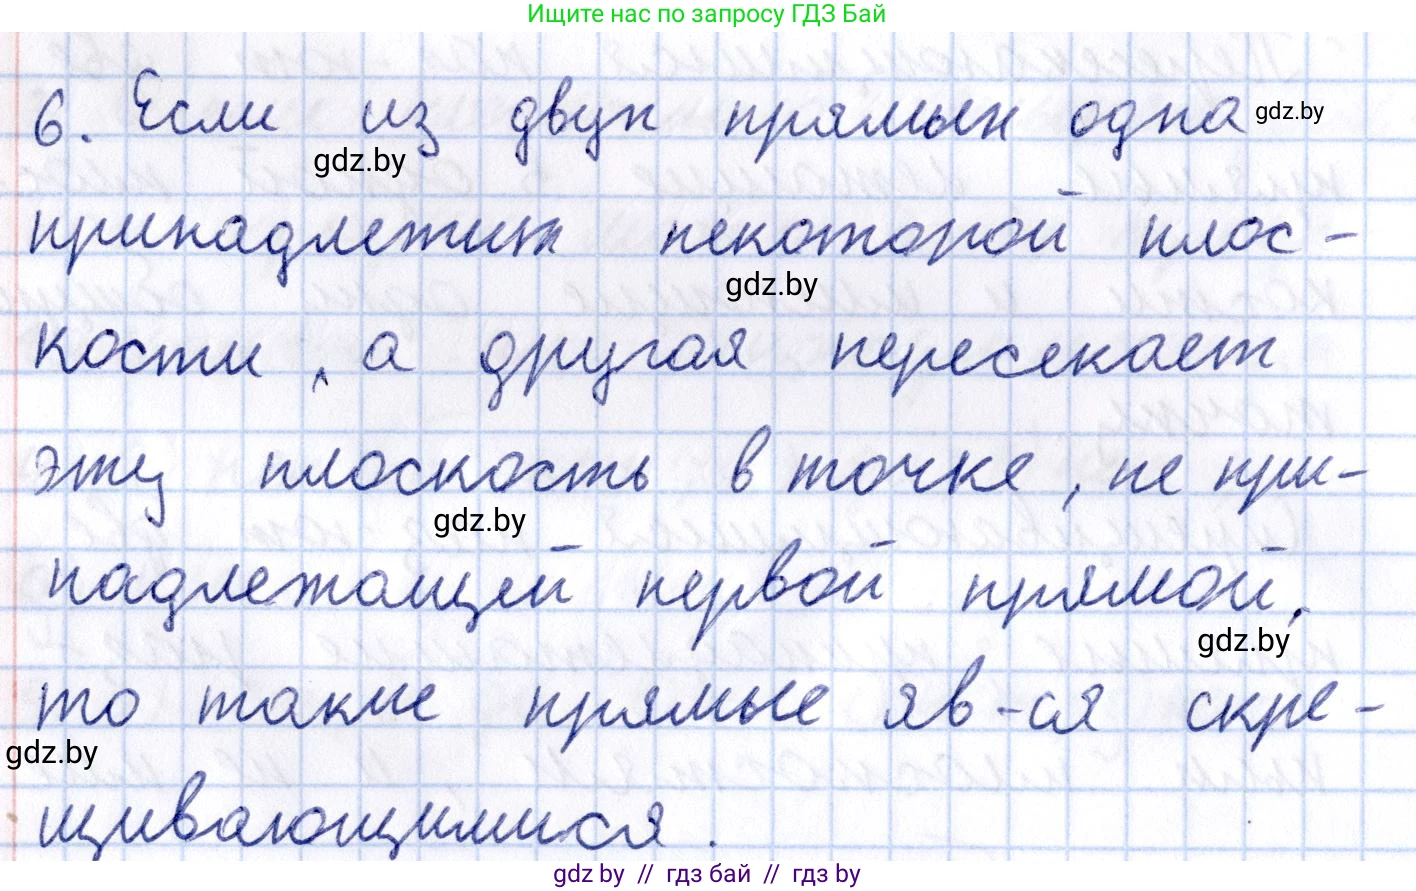 Ищите нас по запросу ГДЗ Бай
6. Если из двух прямых одна
gdz.by
gdz.by
принадлежит некоторой плос-
gdz.by
кости, а другая пересекает
эту плоскость в точке, не при-
gdz.by
надлежащей первой прямой,
gdz.by
то такие прямые яв-ся скре-
gdz.by
щивающимися.
gdz.by // гдз бай // гдз by